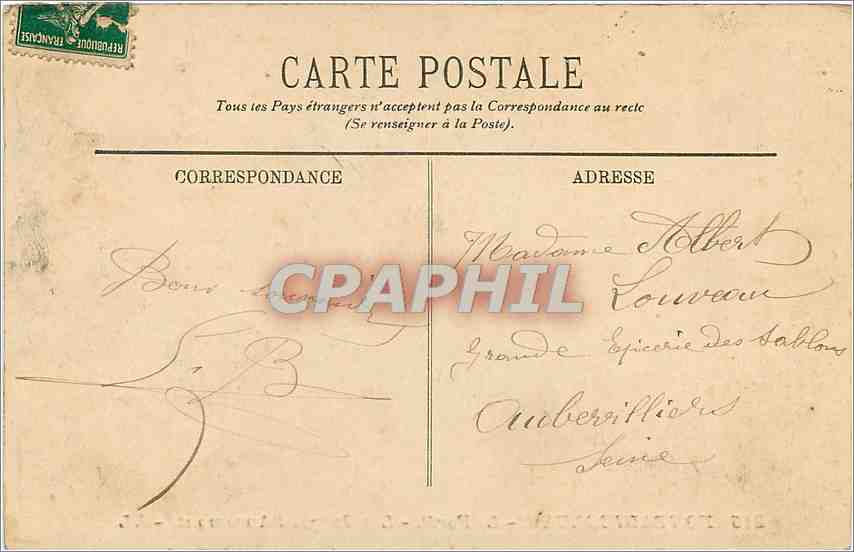 REPUBLIQUE FRANÇAISE
CARTE POSTALE
Tous les Pays étrangers n'acceptent pas la Correspondance au recto
(Se renseigner à la Poste).
CORRESPONDANCE
ADRESSE
Bons souvenirs
B
Madame Albert
Louveau
Grande Epicerie des Sablons
Aubervilliers
Seine
CPAPHIL